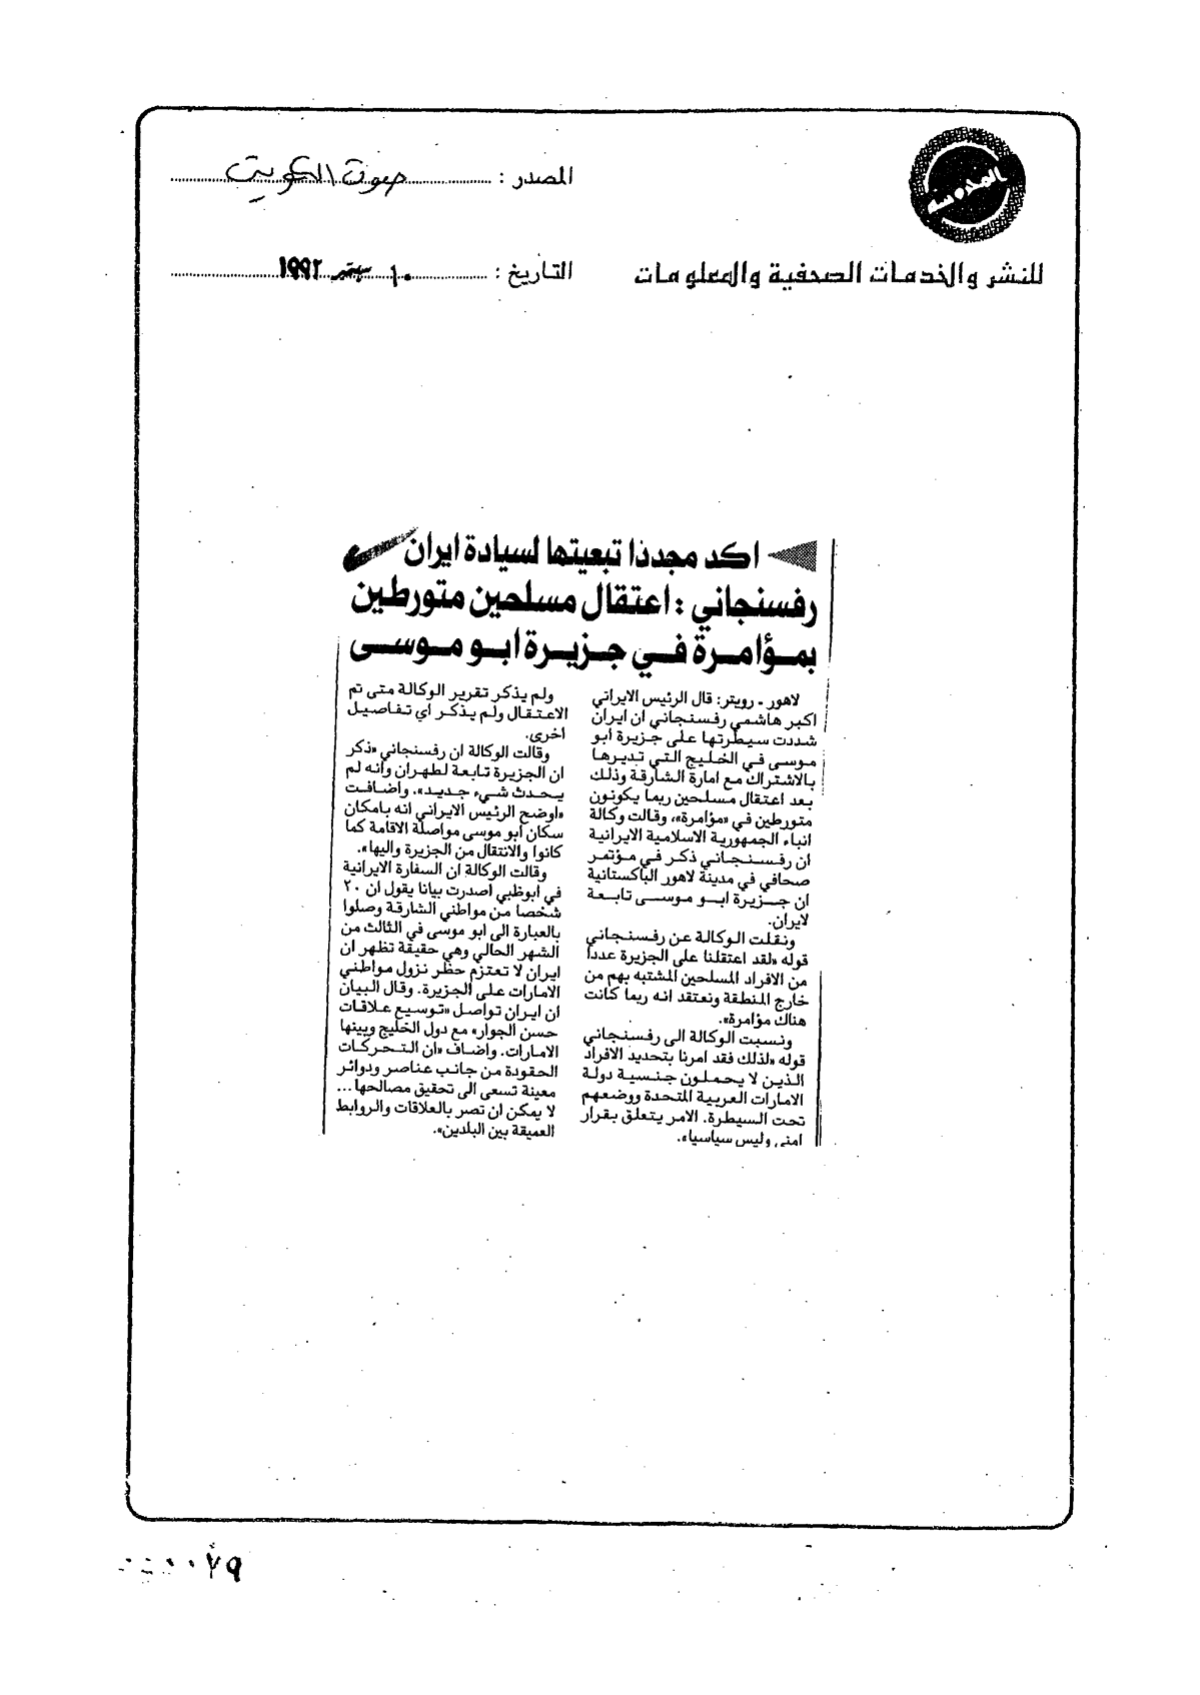 المصدر : صوت الكويت
للنشر والخدمات الصحفية والمعلومات
التاريخ : ١٠ سبتمبر ١٩٩٢
اكد مجددا تبعيتها لسيادة ايران
رفسنجاني : اعتقال مسلحين متورطين
بمؤامرة في جزيرة ابو موسى
لاهور - رويتر: قال الرئيس الايراني
اكبر هاشمي رفسنجاني ان ايران
شددت سيطرتها على جزيرة ابو
موسى في الخليج التي تديرها
بالاشتراك مع امارة الشارقة وذلك
بعد اعتقال مسلحين ربما يكونون
متورطين في «مؤامرة»، وقالت وكالة
انباء الجمهورية الاسلامية الايرانية
ان رفسنجاني ذكر في مؤتمر
صحافي في مدينة لاهور الباكستانية
ان جزيرة ابو موسى تابعة
لايران.
ونقلت الوكالة عن رفسنجاني
قوله «لقد اعتقلنا على الجزيرة عددا
من الافراد المسلحين المشتبه بهم من
خارج المنطقة ونعتقد انه ربما كانت
هناك مؤامرة».
ونسبت الوكالة الى رفسنجاني
قوله «لذلك فقد امرنا بتحديد الافراد
الذين لا يحملون جنسية دولة
الامارات العربية المتحدة ووضعهم
تحت السيطرة. الامر يتعلق بقرار
امني وليس سياسيا».
ولم يذكر تقرير الوكالة متى تم
الاعتقال ولم يذكر اي تفاصيل
اخرى.
وقالت الوكالة ان رفسنجاني «ذكر
ان الجزيرة تابعة لطهران وانه لم
يحدث شيء جديد». واضافت
«اوضح الرئيس الايراني انه بامكان
سكان ابو موسى مواصلة الاقامة كما
كانوا والانتقال من الجزيرة واليها».
وقالت الوكالة ان السفارة الايرانية
في ابوظبي اصدرت بيانا يقول ان ٢٠
شخصا من مواطني الشارقة وصلوا
بالعبارة الى ابو موسى في الثالث من
الشهر الحالي وهي حقيقة تظهر ان
ايران لا تعتزم حظر نزول مواطني
الامارات على الجزيرة. وقال البيان
ان ايران تواصل «توسيع علاقات
حسن الجوار» مع دول الخليج وبينها
الامارات. واضاف «ان التحركات
الحقودة من جانب عناصر ودوائر
معينة تسعى الى تحقيق مصالحها...
لا يمكن ان تضر بالعلاقات والروابط
العميقة بين البلدين».